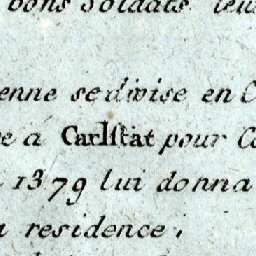 bons soldats leu
enne se divise en C
e a Carlstat pour C
1379 lui donna
a residence,